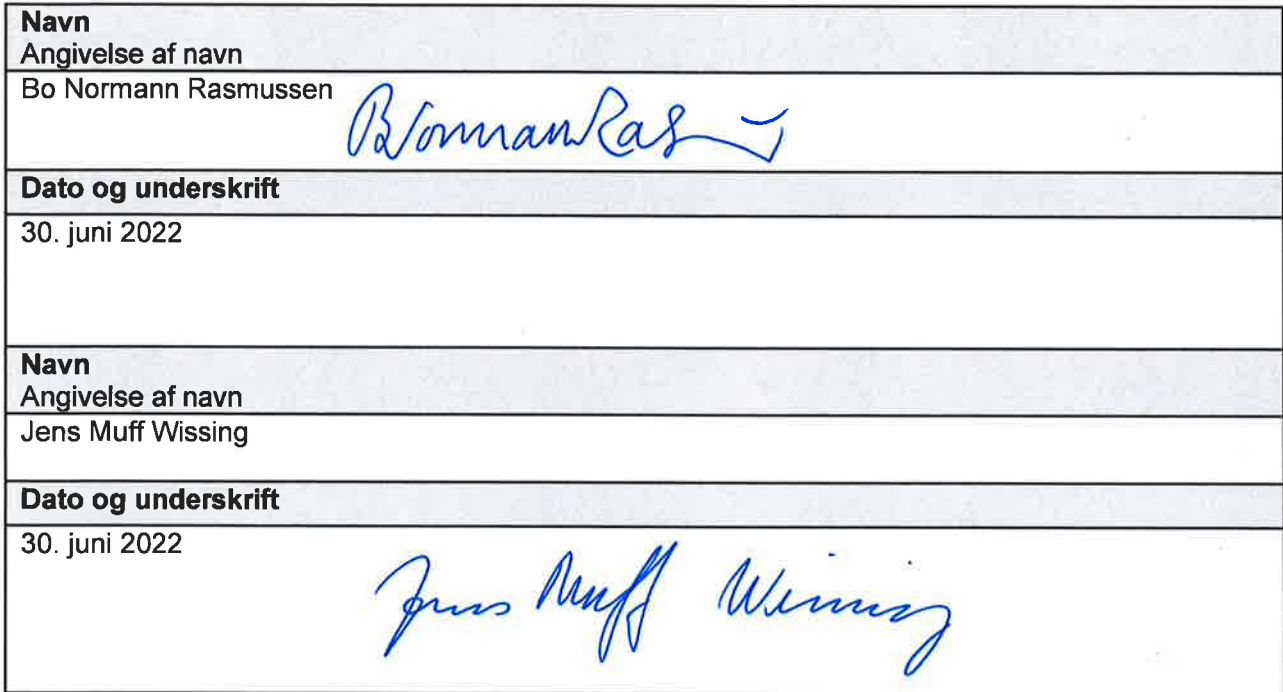 Navn
Angivelse af navn
Bo Normann Rasmussen
BNormannRas
Dato og underskrift
30. juni 2022
Navn
Angivelse af navn
Jens Muff Wissing
Dato og underskrift
30. juni 2022
Jens Muff Wissing